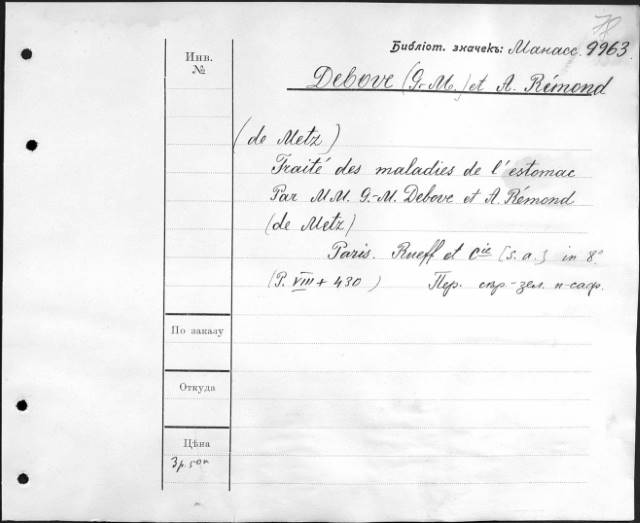 Библіот. значекъ: Манасс. 9963.
Инв. №
Debove (G.-M.) et A. Rémond
(de Metz)
Traité des maladies de l'estomac
Par MM. G.-M. Debove et A. Rémond
(de Metz)
Paris. Rueff et Cie [s. a.] in 8°
(P. VIII + 430) Пер. сѣр.-зел. п-саф.
По заказу
Откуда
Цѣна
3 р. 50 к